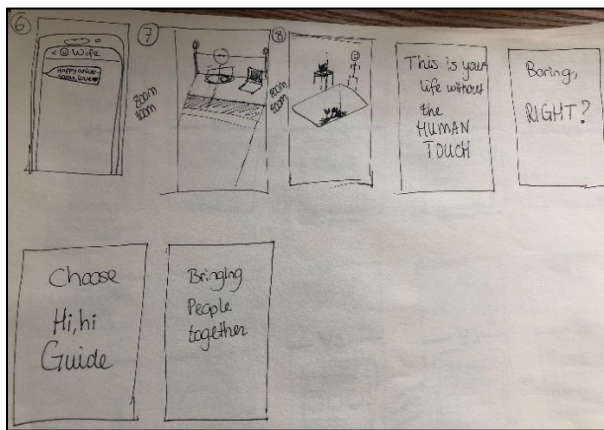 6
< Wife
Happy anniver-
7
zoom
zoom
8
zoom
zoom
This is your
life without
the
HUMAN
TOUCH
Boring,
RIGHT?
Choose
Hi,hi
Guide
Bringing
People
together